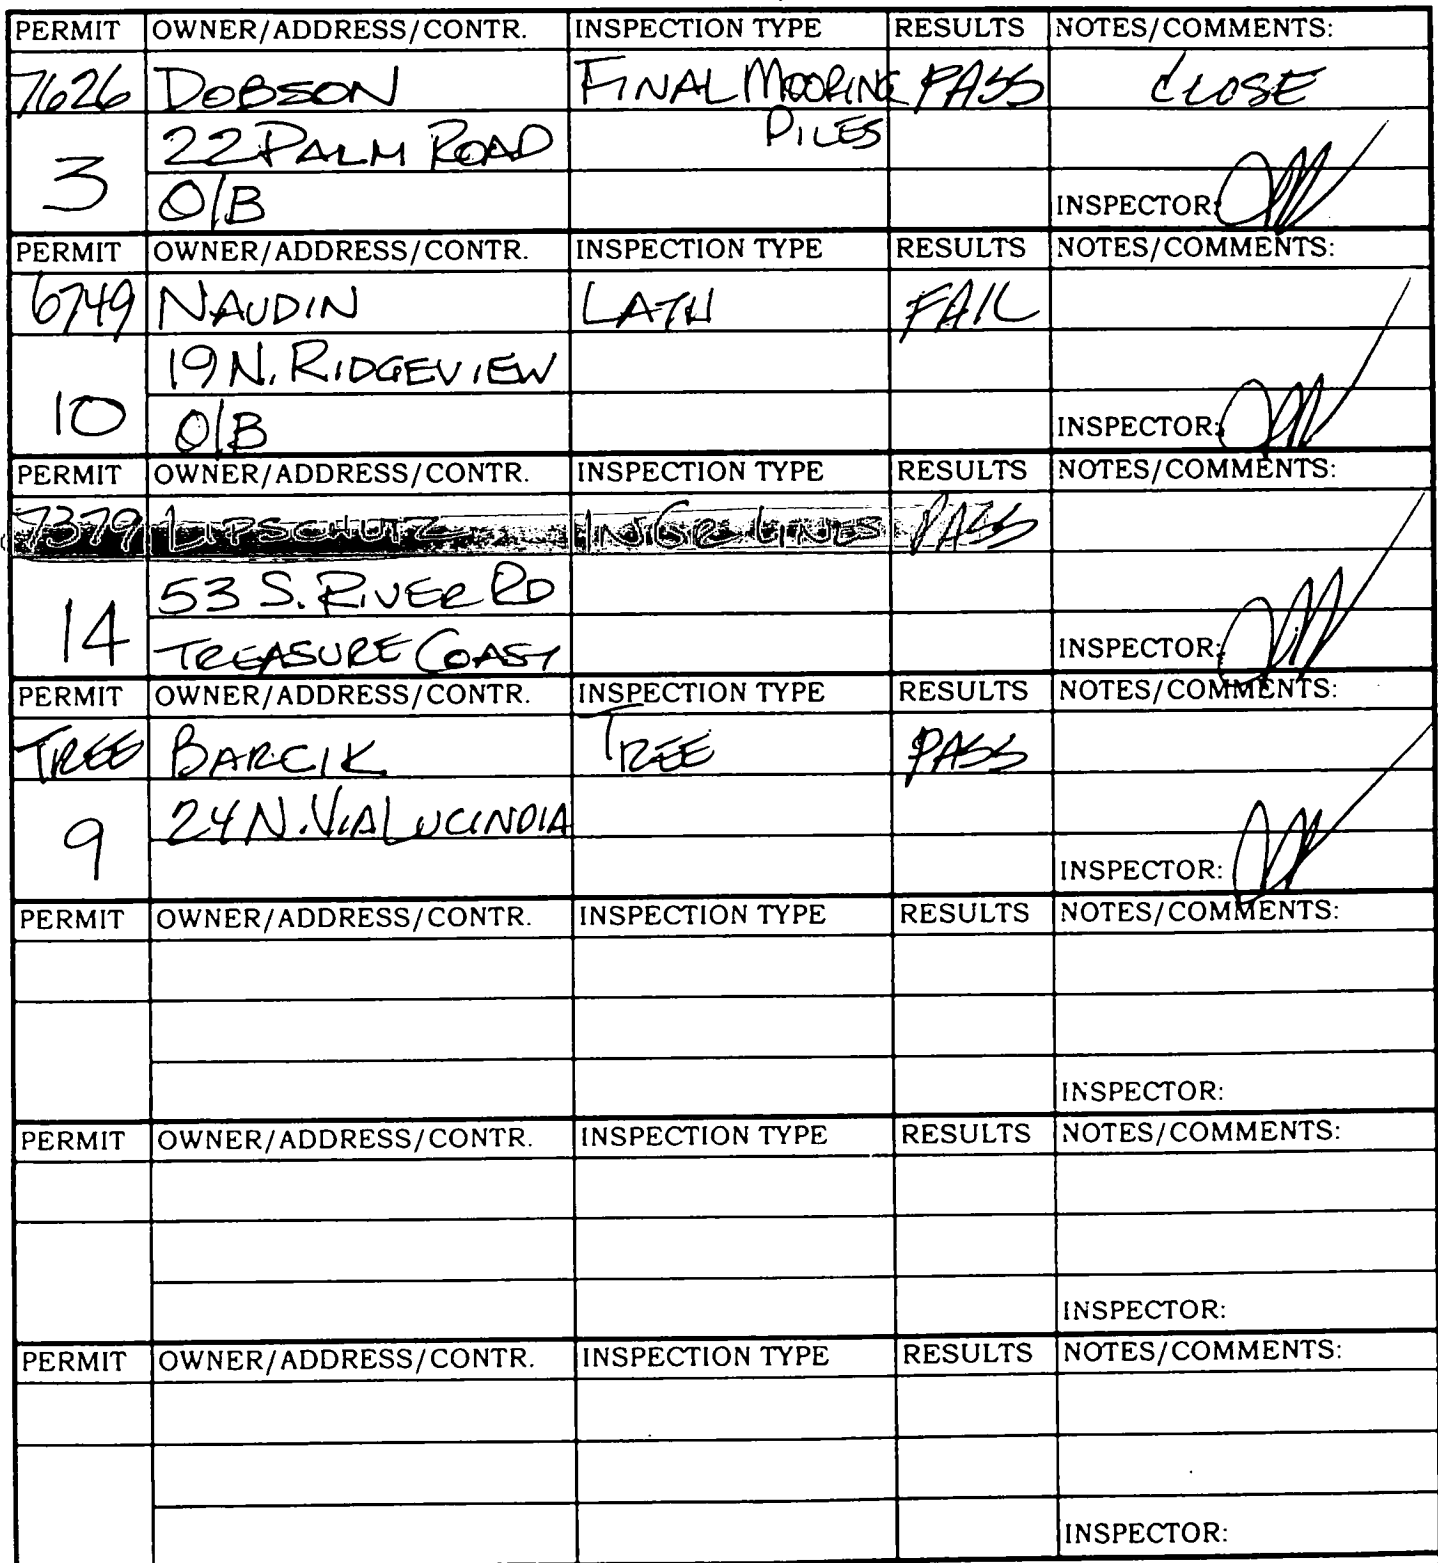 PERMIT OWNER/ADDRESS/CONTR. INSPECTION TYPE RESULTS NOTES/COMMENTS:
7626 DOBSON FINAL MOORING PASS CLOSE
22 PALM ROAD PILES
3 O/B INSPECTOR:
PERMIT OWNER/ADDRESS/CONTR. INSPECTION TYPE RESULTS NOTES/COMMENTS:
6749 NAUDIN LATH FAIL
19 N. RIDGEVIEW
10 O/B INSPECTOR:
PERMIT OWNER/ADDRESS/CONTR. INSPECTION TYPE RESULTS NOTES/COMMENTS:
7379 LIPSCHUTZ IN GR LINES PASS
53 S. RIVER RD
14 TREASURE COAST INSPECTOR:
PERMIT OWNER/ADDRESS/CONTR. INSPECTION TYPE RESULTS NOTES/COMMENTS:
TREE BARCIK TREE PASS
24 N. VIA LUCINDIA
9 INSPECTOR:
PERMIT OWNER/ADDRESS/CONTR. INSPECTION TYPE RESULTS NOTES/COMMENTS:
INSPECTOR:
PERMIT OWNER/ADDRESS/CONTR. INSPECTION TYPE RESULTS NOTES/COMMENTS:
INSPECTOR:
PERMIT OWNER/ADDRESS/CONTR. INSPECTION TYPE RESULTS NOTES/COMMENTS:
INSPECTOR: